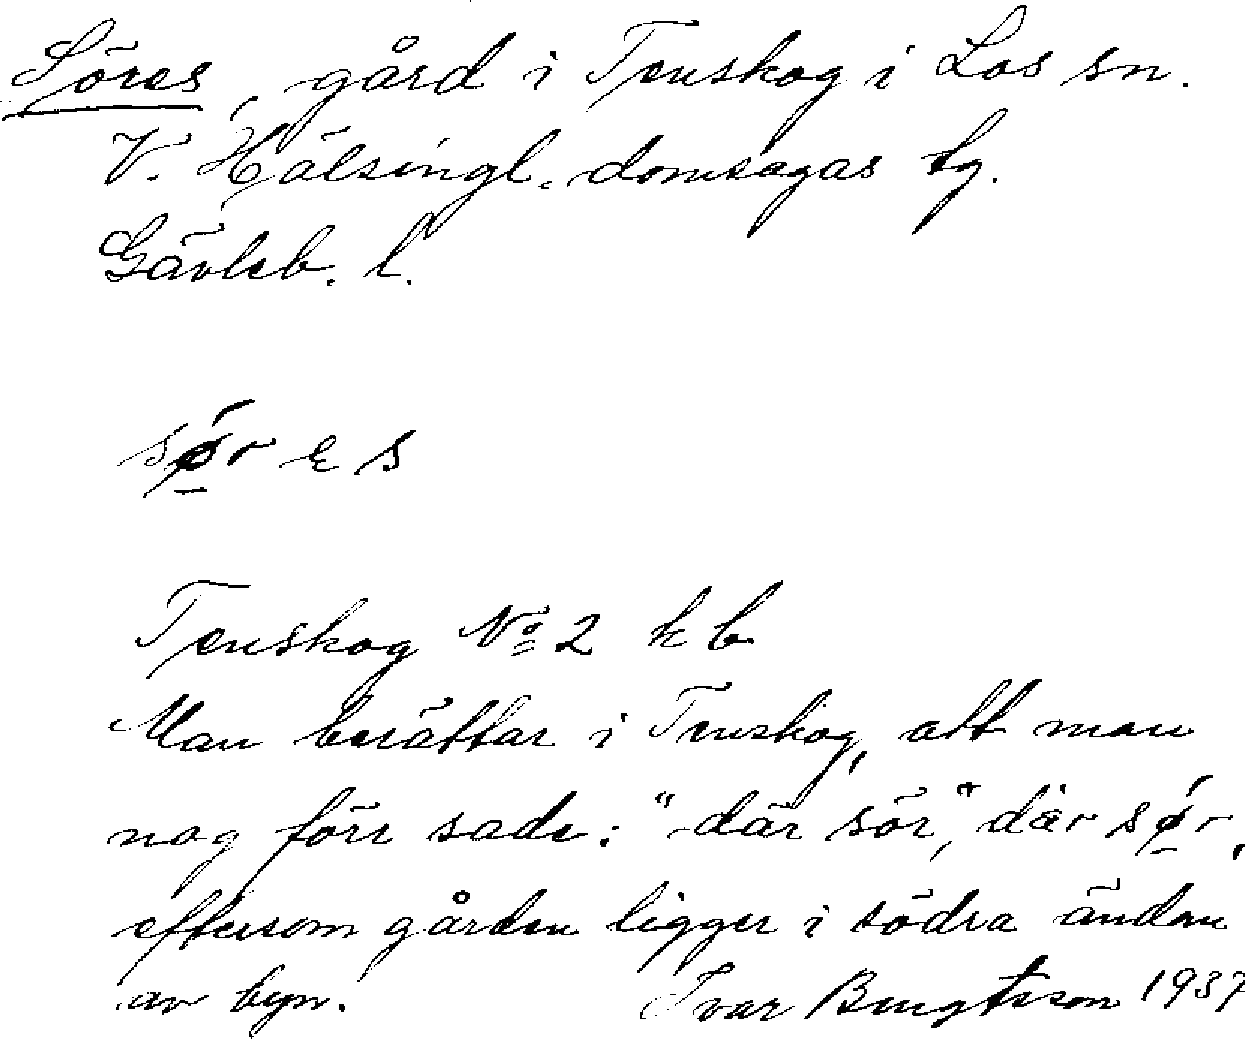 Söres, gård i Tenskog i Los sn.
V. Hälsingl. domsagas tg.
Gävleb. l.
sǿ̱r e s
Tenskog No 2 kb
Man berättar i Tenskog, att man
nog förr sade: "där sör", där sǿ̱r,
eftersom gården ligger i södra ändan
av byn. Ivar Bengtsson 1937